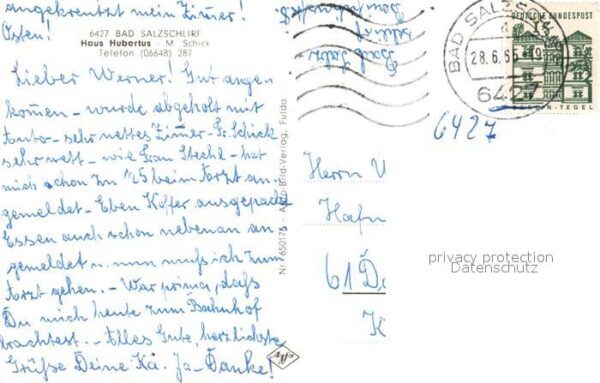 angekreuzt mein Zimer!
Osten!
6427 BAD SALZSCHLIRF
Haus Hubertus - M. Schick
Telefon (06648) 287
Lieber Werner! Gut angekomen - wurde abgeholt mit
Auto - sehr nettes Zimer - Fr. Schick
sehr nett - wie Frau Stechl - hat
mich schon zu 1/25 beim Arzt angemeldet - Eben Koffer ausgepackt
Essen auch schon nebenan angemeldet u. nun muß ich zum
Arzt gehen. - War prima, daß
Du mich heute zum Bahnhof
brachtest. - Alles Gute, herzlichste
Grüße Deine Kä. Ja - Danke!
Nr. 650176 - Auto Bild-Verlag, Fulda
Bad Salz-
schlirf
DEUTSCHE BUNDESPOST
BERLIN-TEGEL
BAD SALZSCH
28.6.66-19
6427
6427
Herrn W
Hafn
61 Da
K
privacy protection
Datenschutz
Agfa